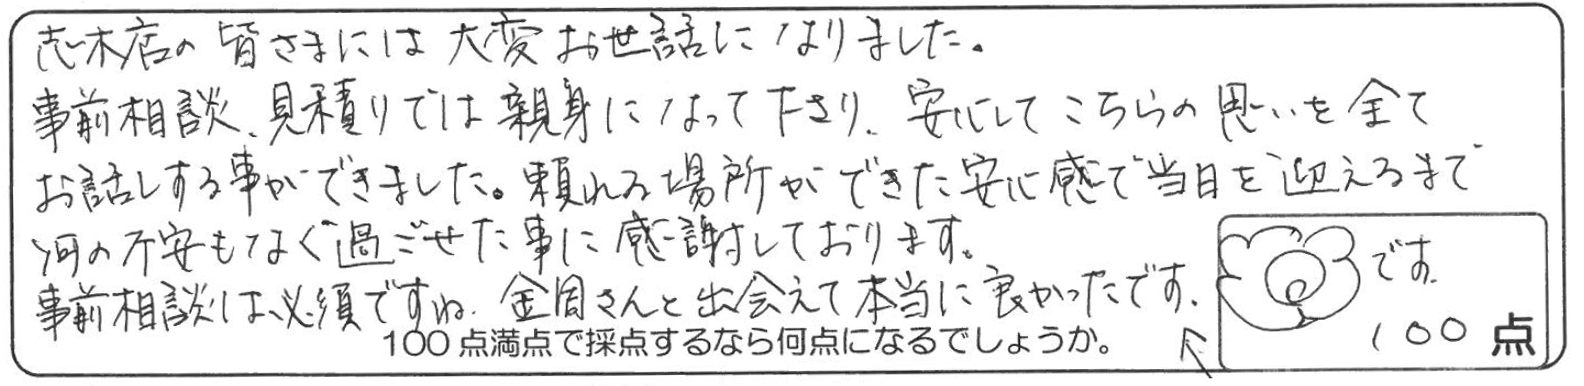 志木店の皆さまには大変お世話になりました。
事前相談、見積りでは親身になって下さり、安心してこちらの思いを全て
お話しする事ができました。頼れる場所ができた安心感で当日を迎えるまで
何の不安もなく過ごせた事に感謝しております。
事前相談は必須ですね。金岡さんと出会えて本当に良かったです。
100点満点で採点するなら何点になるでしょうか。
です。
100点